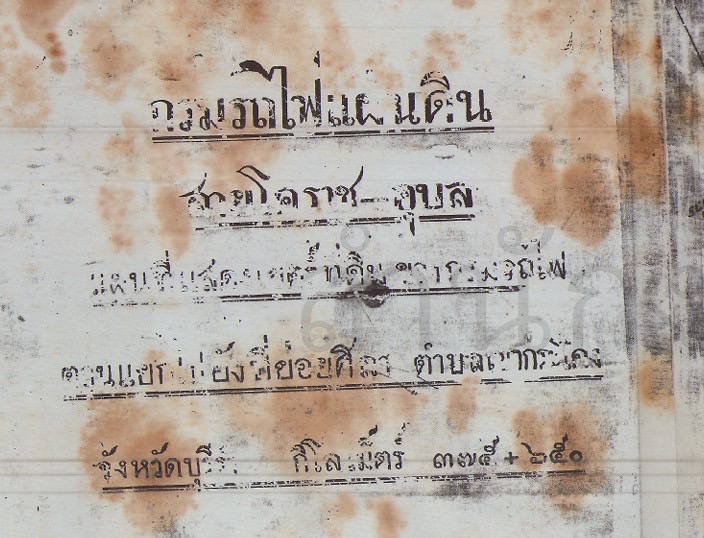 กรมรถไฟแผ่นดิน
สายโคราช-อุบล
แผนที่แสดงเขตร์ที่ดินของกรมรถไฟ
ตอนแยกไปยังที่ย่อยศิลา ตำบลเขากระโดง
จังหวัดบุรีร กิโลเม็ตร์ ๓๗๕+๖๕๐
สำนัก